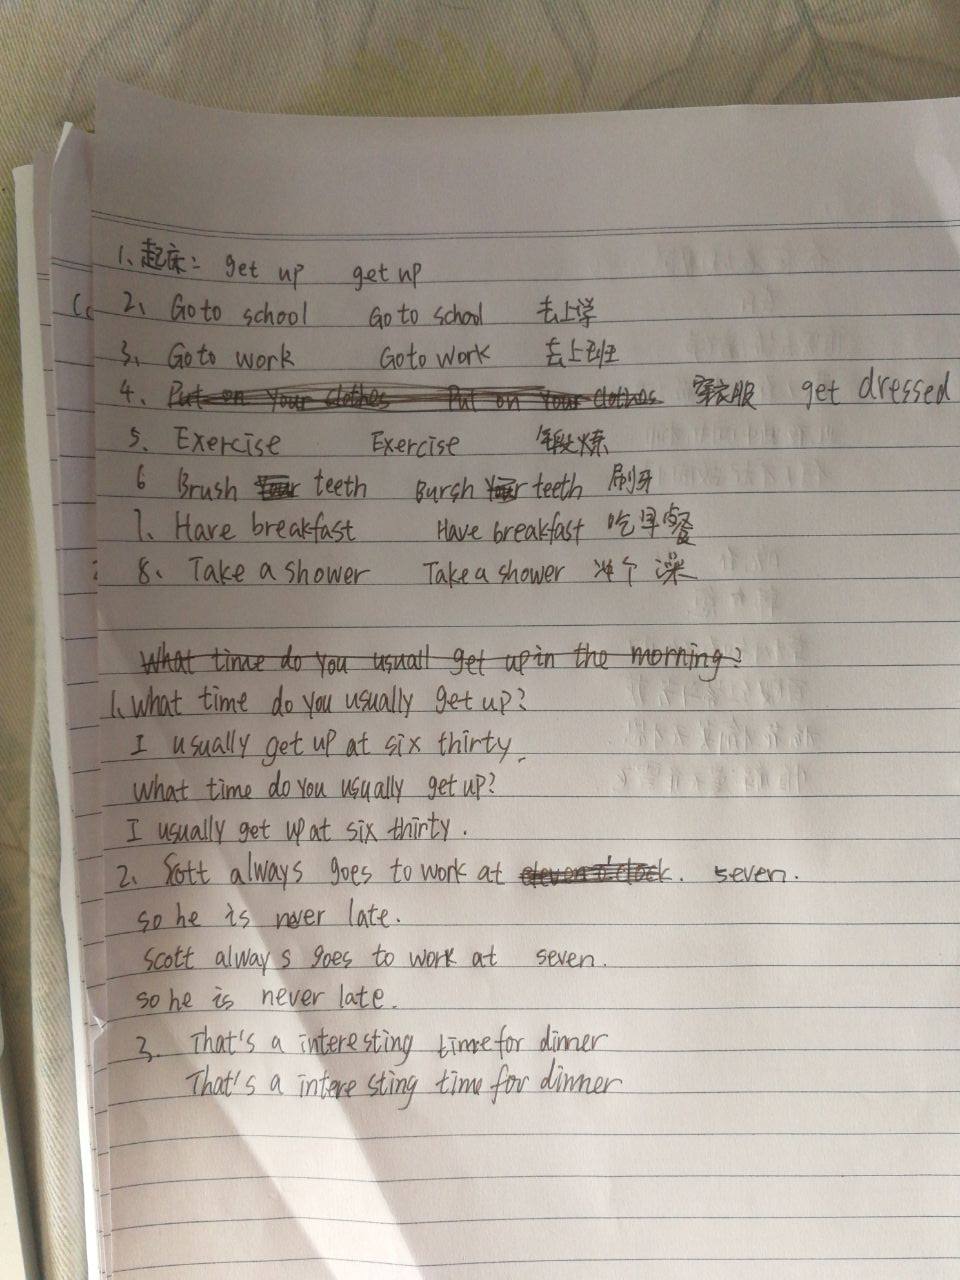 1、起床: get up get up
2、 Go to school Go to school 去上学
3、 Go to work Go to work 去上班
4、 Put on Your clothes Put on Your clothes 穿衣服 get dressed
5、 Exercise Exercise 锻炼
6 Brush Your teeth Bursh Your teeth 刷牙
7、 Have breakfast Have breakfast 吃早餐
8、 Take a shower Take a shower 冲个澡
What time do you usuall get up in the morning?
1、What time do you usually get up?
I usually get up at six thirty.
What time do you usually get up?
I usually get up at six thirty.
2、 Scott always goes to work at eleven o'clock. seven.
so he is never late.
Scott always goes to work at seven.
so he is never late.
3、 That's a interesting time for dinner
That's a interesting time for dinner